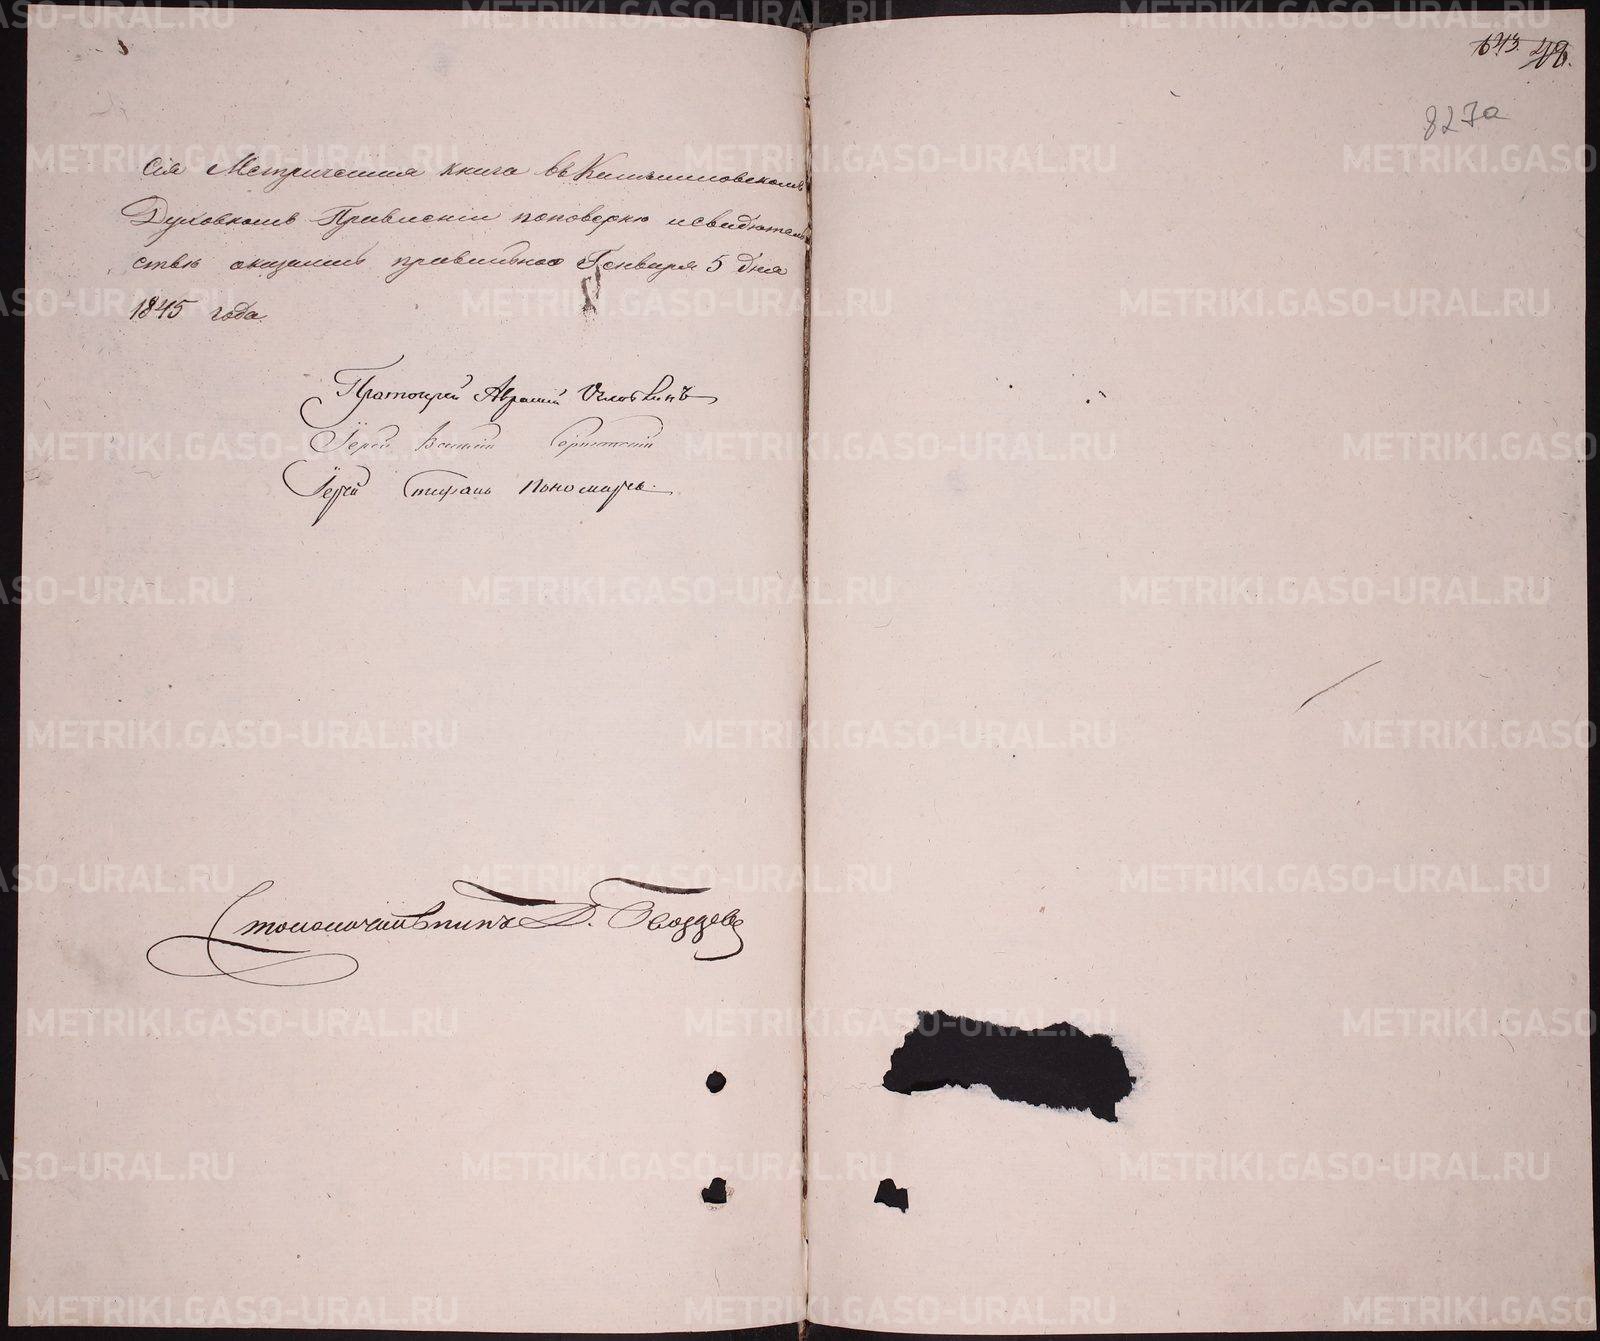 643. 48.
827а
Сія Метрическая книга въ Камышловскомъ
Духовномъ Правленіи по поверкѣ и свидѣтель
ству оказалась правильною Генваря 5 дня
1845 года.
Протоіерей Аврамій
Іерей Василій
Іерей Стефанъ Пономаревъ.
Столоначальникъ Д. Гвоздевъ
METRIKI.GASO-URAL.RU